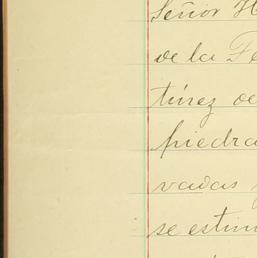 Señor H
de la Fe
tínez de
piedra
vadas y
se estim